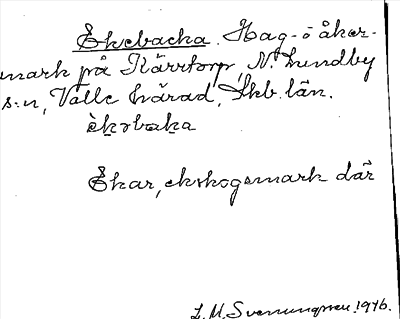 Ekebacka. Hag- o åker-
mark på Kärrtorp, N. Lundby
s:n, Valle härad, Skb. län.
èkebaka
Ekar, ekskogsmark där
L. M. Svenungsson 1916.